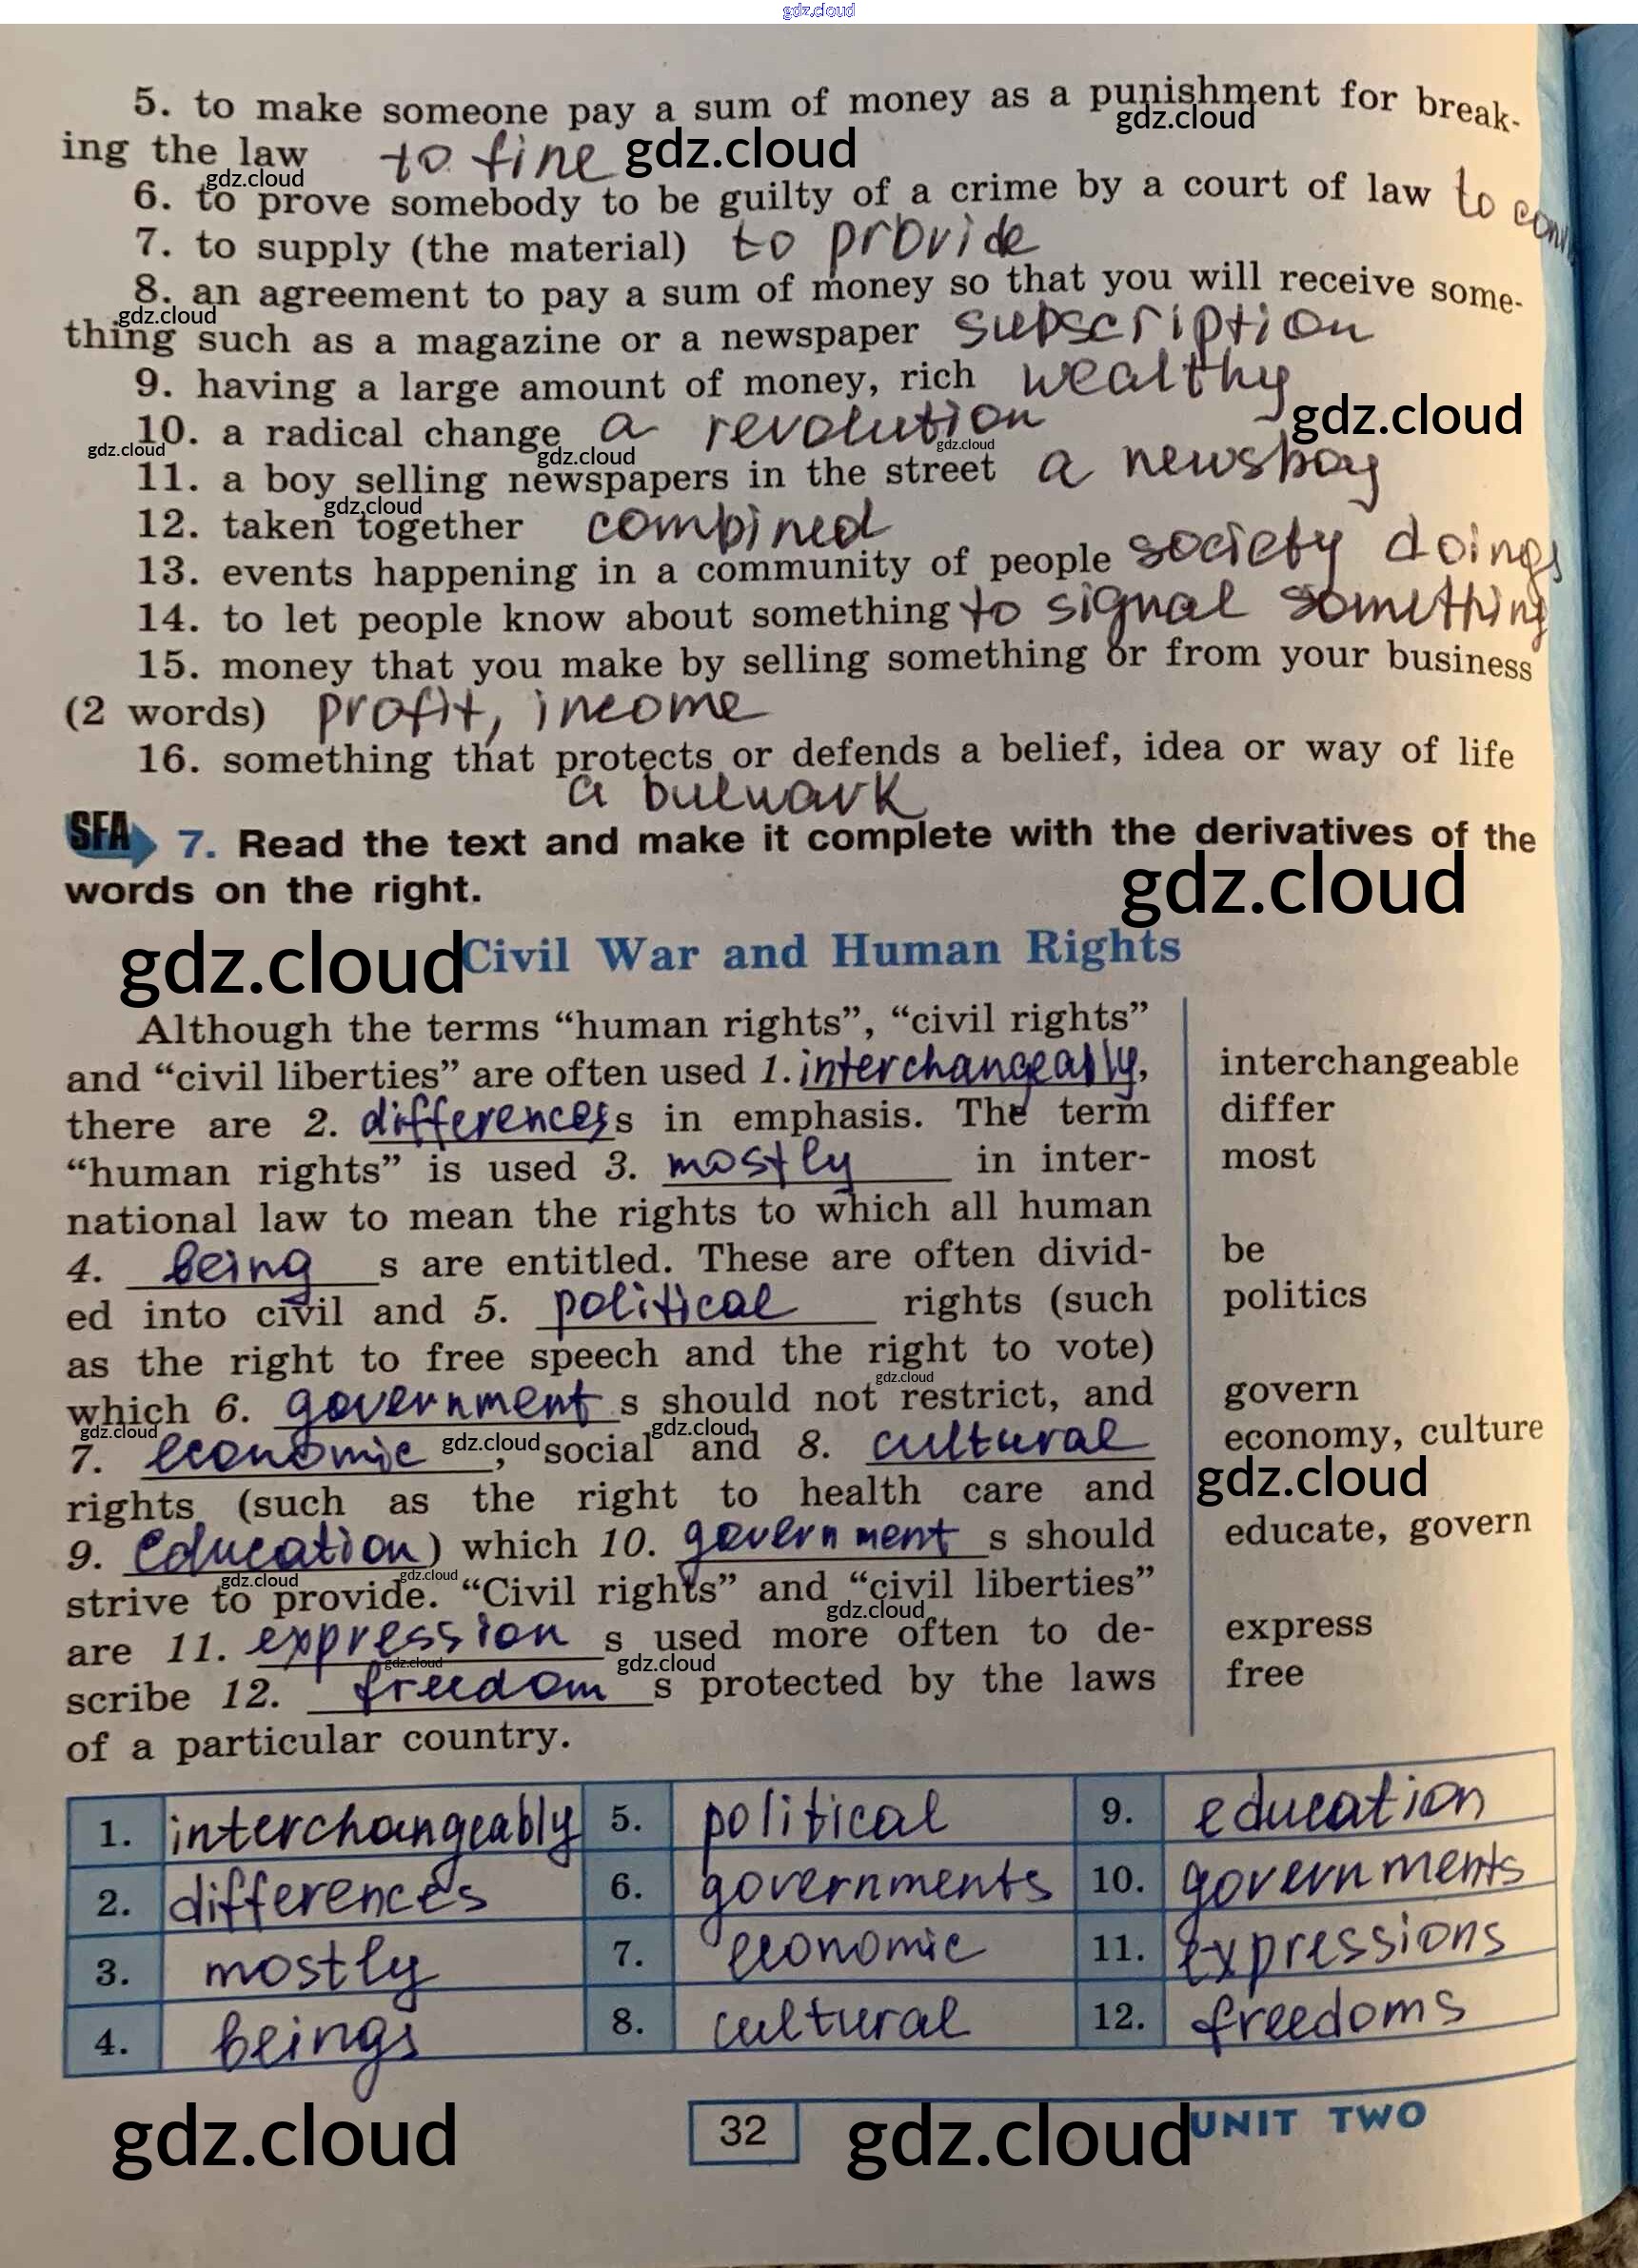 gdz.cloud
5. to make someone pay a sum of money as a punishment for break-
gdz.cloud
ing the law to fine gdz.cloud
gdz.cloud
6. to prove somebody to be guilty of a crime by a court of law to
7. to supply (the material) to provide
8. an agreement to pay a sum of money so that you will receive some-
gdz.cloud
thing such as a magazine or a newspaper subscription
9. having a large amount of money, rich wealthy
gdz.cloud
10. a radical change a revolution
gdz.cloud gdz.cloud gdz.cloud
11. a boy selling newspapers in the street a newsboy
gdz.cloud
12. taken together combined
13. events happening in a community of people society doings
14. to let people know about something to signal something
15. money that you make by selling something or from your business
(2 words) profit, income
16. something that protects or defends a belief, idea or way of life
a bulwark
SFA 7. Read the text and make it complete with the derivatives of the
words on the right.
gdz.cloud
gdz.cloud
Civil War and Human Rights
Although the terms “human rights”, “civil rights”
and “civil liberties” are often used 1. interchangeably, interchangeable
there are 2. differences s in emphasis. The term differ
“human rights” is used 3. mostly in inter- most
national law to mean the rights to which all human
4. being s are entitled. These are often divid- be
ed into civil and 5. political rights (such politics
as the right to free speech and the right to vote)
gdz.cloud
which 6. government s should not restrict, and govern
gdz.cloud gdz.cloud gdz.cloud
7. economic, social and 8. cultural economy, culture
gdz.cloud
rights (such as the right to health care and
9. education) which 10. government s should educate, govern
gdz.cloud gdz.cloud
strive to provide. “Civil rights” and “civil liberties”
gdz.cloud
are 11. expression s used more often to de- express
gdz.cloud gdz.cloud
scribe 12. freedom s protected by the laws free
of a particular country.
1. interchangeably 5. political 9. education
2. differences 6. governments 10. governments
3. mostly 7. economic 11. expressions
4. beings 8. cultural 12. freedoms
gdz.cloud 32 gdz.cloud UNIT TWO